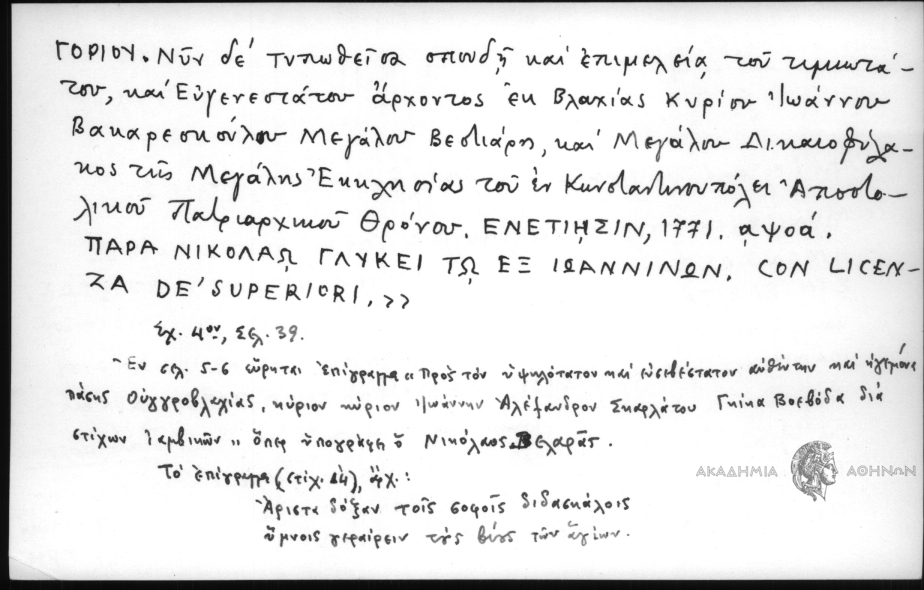 ΓΟΡΙΟΥ. Νῦν δέ τυπωθεῖσα σπουδῇ καί ἐπιμελείᾳ τοῦ τιμιωτά-
του, καί Εὐγενεστάτου ἄρχοντος ἐκ Βλαχίας Κυρίου Ἰωάννου
Βακαρεσκούλου Μεγάλου Βεστιάρη, καί Μεγάλου Δικαιοφύλα-
κος τῆς Μεγάλης Ἐκκλησίας τοῦ ἐν Κωνσταντινουπόλει Ἀποστο-
λικοῦ Πατριαρχικοῦ Θρόνου. ΕΝΕΤΙῌΣΙΝ, 1771. αψοά.
ΠΑΡΑ ΝΙΚΟΛΑῼ ΓΛΥΚΕΙ Τῼ ΕΞ ΙΩΑΝΝΙΝΩΝ. CON LICEN-
ZA DE' SUPERIORI, »
Σχ. 4ον, Σελ. 39.
Ἐν σελ. 5-6 εὕρηται ἐπίγραμμα «Πρὸς τόν ὑψηλότατον καί εὐσεβέστατον αὐθέντην καί ἡγεμόνα
πάσης Οὐγγροβλαχίας, κύριον κύριον Ἰωάννην Ἀλέξανδρον Σκαρλάτου Γκίκα Βοεβόδα διά
στίχων ἰαμβικῶν» ὅπερ ὑπογράφει ὁ Νικόλαος Βελαρᾶς.
Τό ἐπίγραμμα (στίχ. 24), ἄρχ.:
Ἄριστα δόξαν τοῖς σοφοῖς διδασκάλοις
ὕμνοις γεραίρειν τούς βίους τῶν ἁγίων.
ΑΚΑΔΗΜΙΑ ΑΘΗΝΩΝ